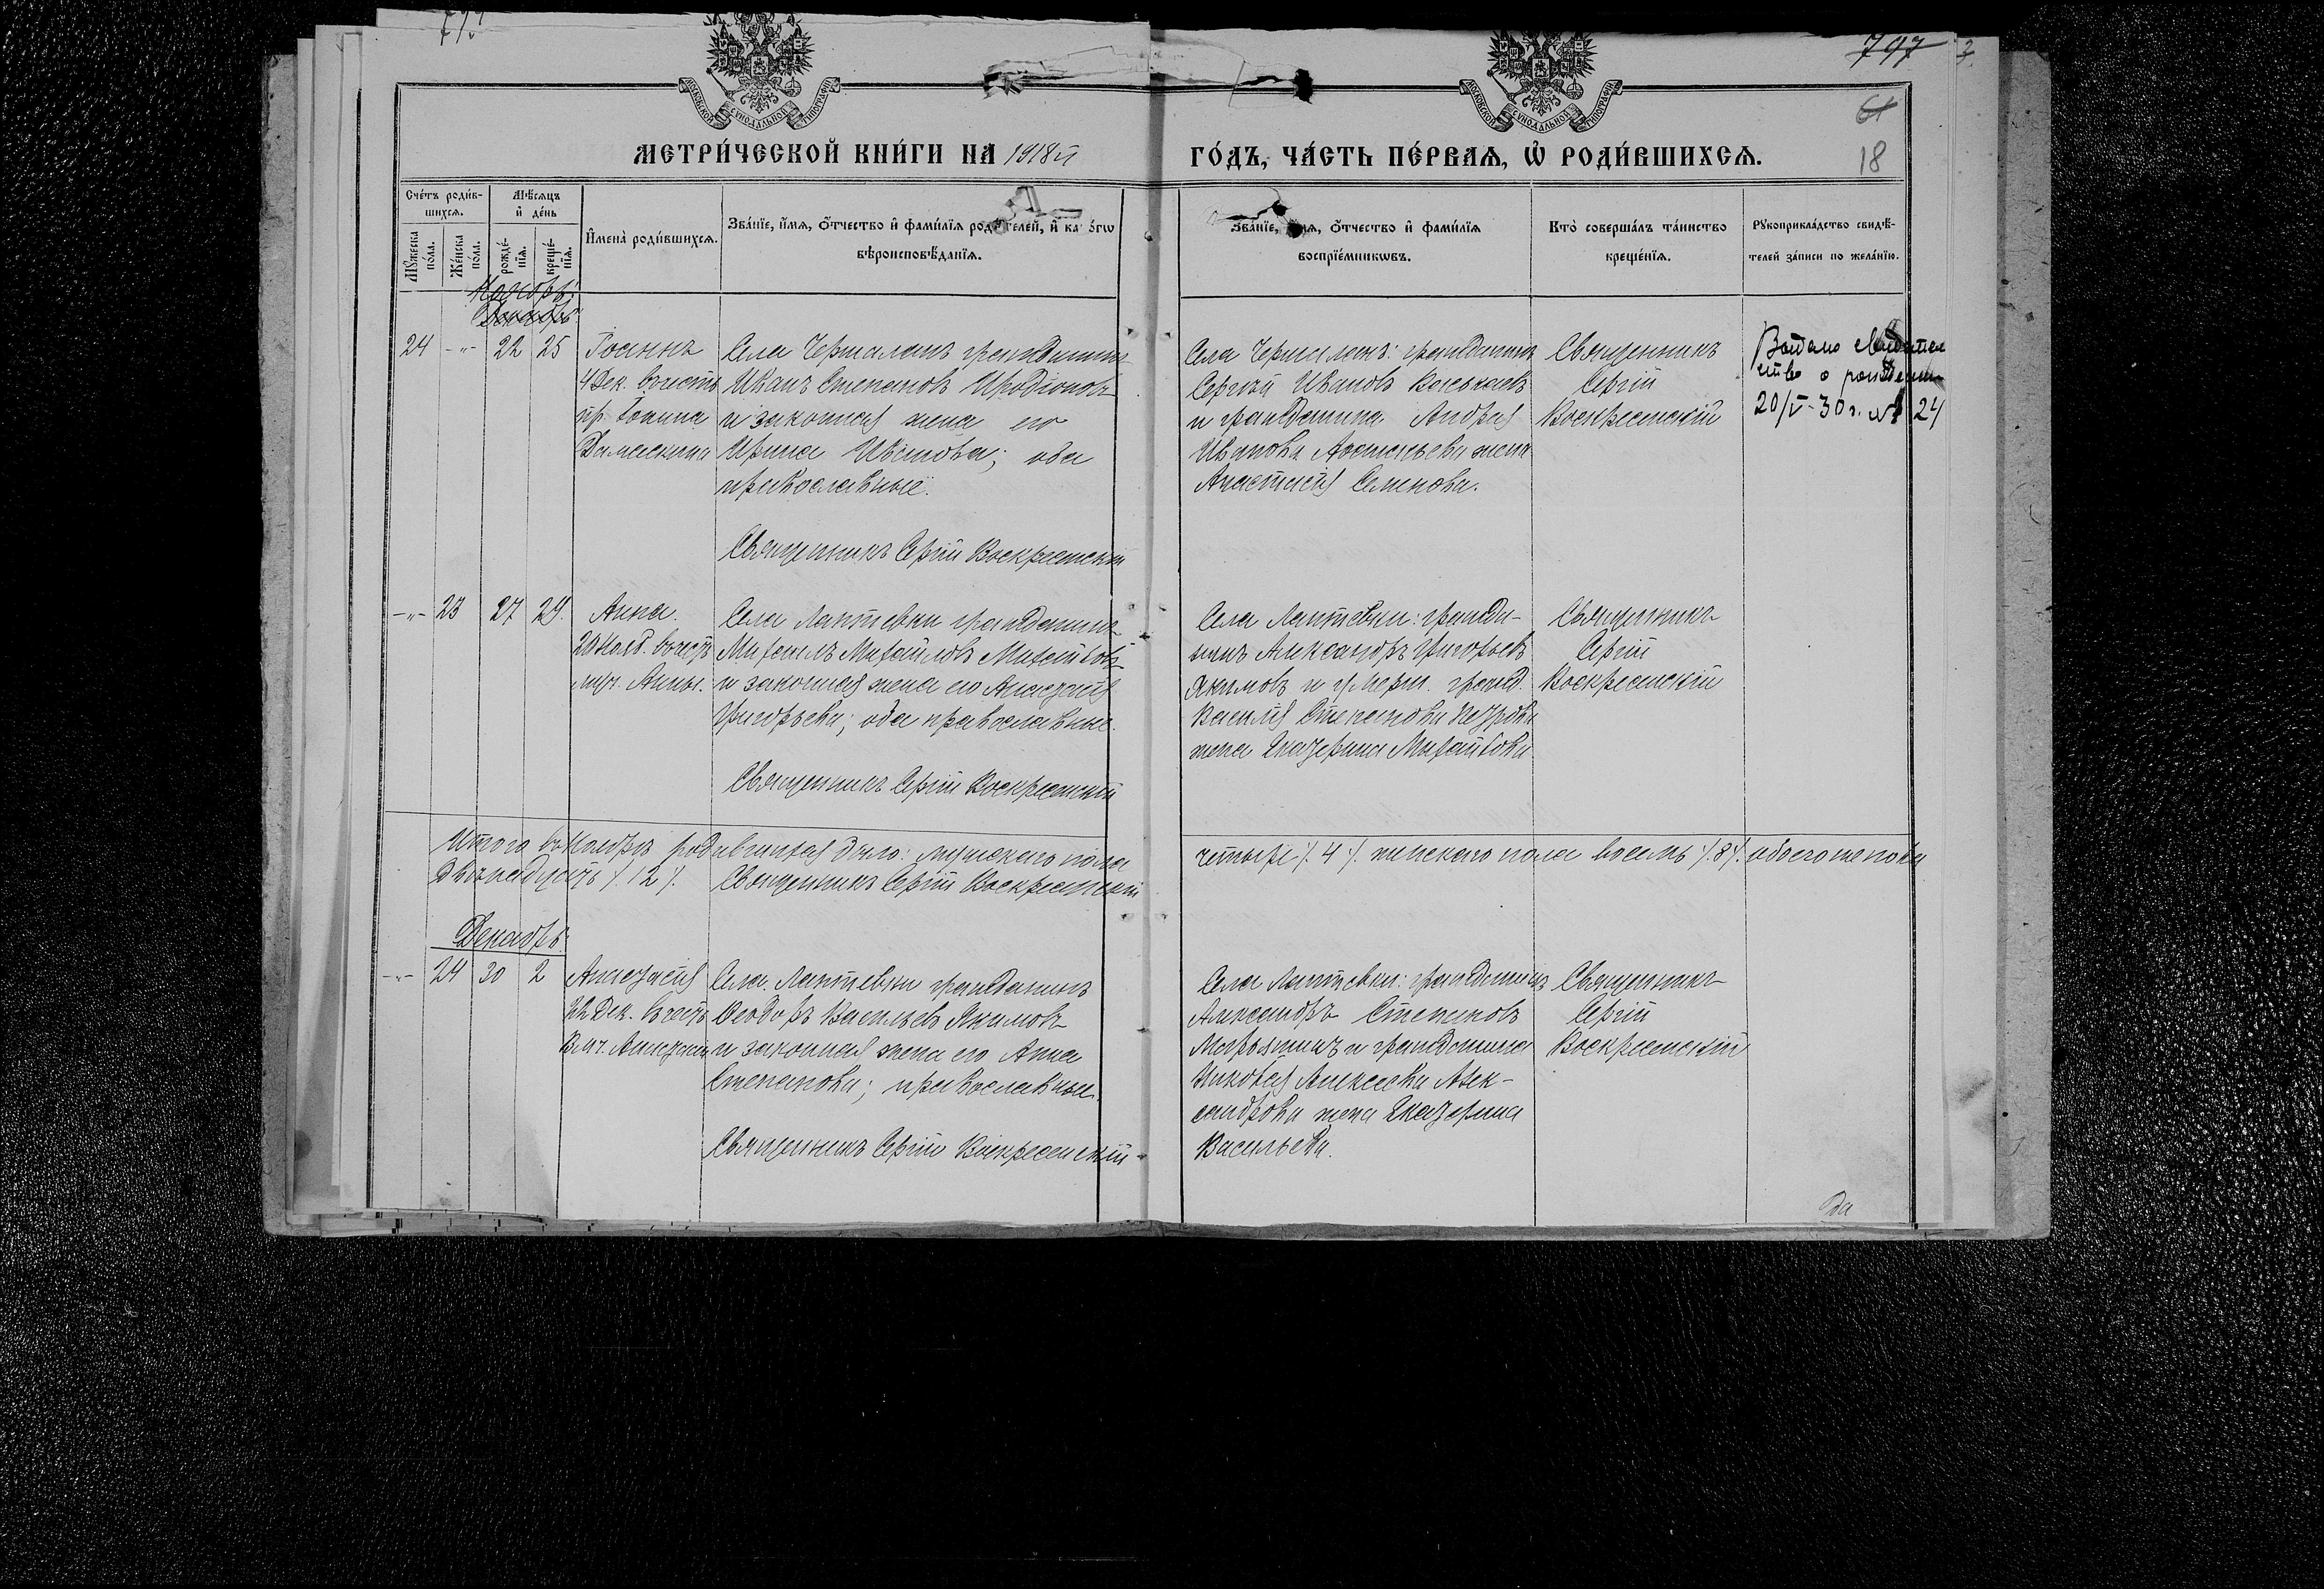 797
3
61
18
МОСКОВСКОЙ СУНОДАЛЬНОЙ ТИПОГРАФІИ
МОСКОВСКОЙ СУНОДАЛЬНОЙ ТИПОГРАФІИ
МЕТРИ́ЧЕСКОЙ КНИ́ГИ НА 1918й
ГО́ДЪ, ЧА́СТЬ ПЕ́РВАЯ, Ѡ РОДИ́ВШИХСЯ.
Сче́тъ роди́в-
шихся.
Мꙋ́жеска по́ла.
Же́нска по́ла.
Мѣ́сяцъ
и҆ де́нь
рожде́-
нїя.
креще́-
нїя.
И҆мена̀ роди́вшихся.
Зва́нїе, и҆́мя, ѻ҆́тчество и҆ фами́лїя роди́телей, и҆ как о́гѡ
вѣроисповѣ́данїя.
Зва́нїе, и҆́мя, ѻ҆́тчество и҆ фами́лїя
воспрїе́мникѡвъ.
Кто̀ соверша́лъ та́инство
креще́нїя.
Рꙋкоприкла́дство свидѣ́-
телей за́писи по жела́нїю.
Ноябрь.
Декабрь
24 -"- 22 25
Іоаннъ
4 Дек. въ честь
пр. Іоанна
Дамаскина
Села гражданинъ
Иванъ Степановъ Иродіоновъ
и законная жена его
Ирина Иванова; оба
православные.
Священникъ Сергій Воскресенскій
Села гражданинъ
Сергѣй Ивановъ Васильевъ
и гражданина Андрея
Иванова жена
Анастасія Семенова.
Священникъ
Сергій
Воскресенскій
Выдано свидѣтел
ство о рождени
20/V-30 г. № 24
-"- 23 27 29.
Анна.
20 Нояб. въ честь
муч. Анны.
Села Лаптевки гражданинъ
Михаилъ Михайловъ Михайловъ
и законная жена его Анастасія
Григорьева; оба православные.
Священникъ Сергій Воскресенскій
Села Лаптевки: гражда-
нинъ Александръ Григорьевъ
Якимовъ и умерш. гражд.
Василія Степанова Петрова
жена Екатерина Михайлова
Священникъ
Сергій
Воскресенскій
Итого въ Ноябрѣ родившихся было: мужскаго пола четыре /. 4 /. женскаго пола восемь /. 8 /. обоего же пола
двѣнадцать /. 12 /. Священникъ Сергій Воскресенскій
Декабрь
-"- 24 30 2
Анастасія
22 Дек. въ честь
Вмч. Анастасіи
Села Лаптевки гражданинъ
Ѳеодоръ Васильевъ Якимовъ
и законная жена его Анна
Степанова; православные.
Священникъ Сергій Воскресенскій
Села Лаптевки: гражданинъ
Александръ Степановъ
и гражданина
Николая Алексѣева Алек-
сандрова жена Екатерина
Васильева.
Священникъ
Сергій
Воскресенскій
Да